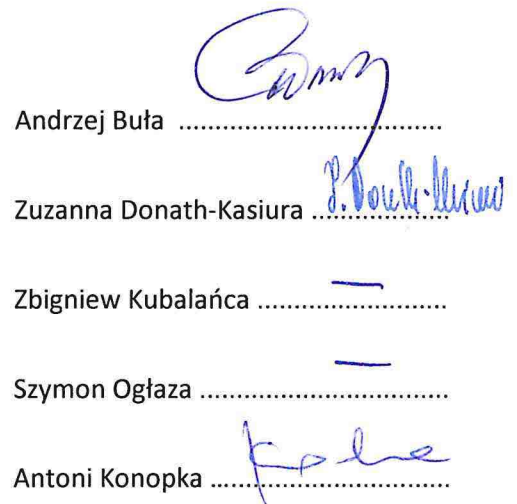 Andrzej Buła ....................................
Zuzanna Donath-Kasiura ...................
Zbigniew Kubalańca ..........................
Szymon Ogłaza ..................................
Antoni Konopka .................................